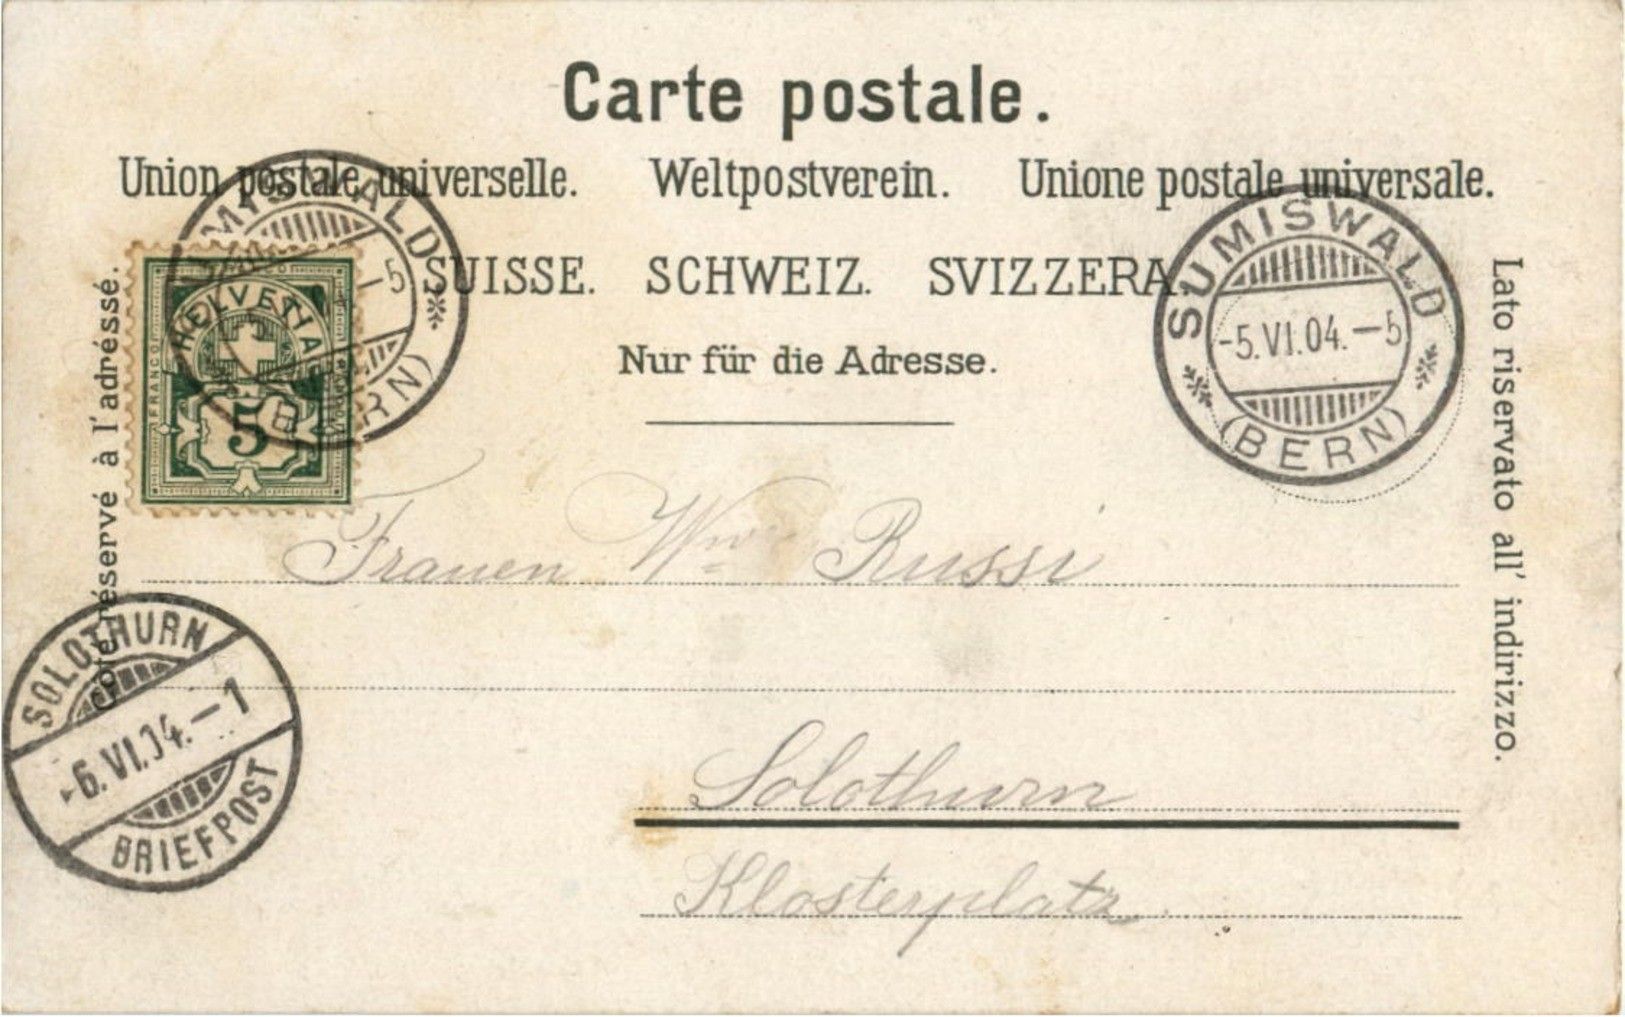 Carte postale.
Union postale universelle. Weltpostverein. Unione postale universale.
SUISSE. SCHWEIZ. SVIZZERA.
Nur für die Adresse.
Côté réservé à l'adréssé.
Lato riservato all' indirizzo.
SUMISWALD
-5.VI.04.-5
(BERN)
SUMISWALD
-5
(BERN)
FRANCO
HELVETIA
5
SOLOTHURN
-6.VI.04.-1
BRIEFPOST
Frauen Wwe Russi
Solothurn
Klosterplatz.